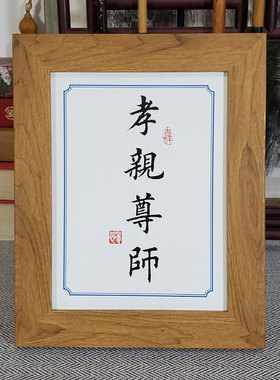 孝親尊師